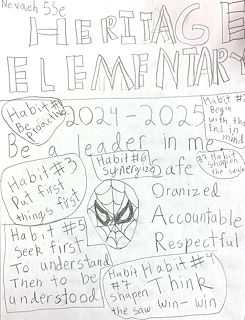 Nevaeh 5Se
HERITAGE
ELEMENTARY
Habit #1
Be
Proactive
2024-2025
Habit #2
Begin
with the
End in
mind
Be a leader in me
#7 Habit
Shapen
the saw
Habit #6
Synergize
Safe
Habit #3
Put first
things first
Oranized
Accountable
Respectful
Habit #5
Seek first
To understand
Then to be
understood
Habit
#7
Shapen
the saw
Habit #4
Think
win-win